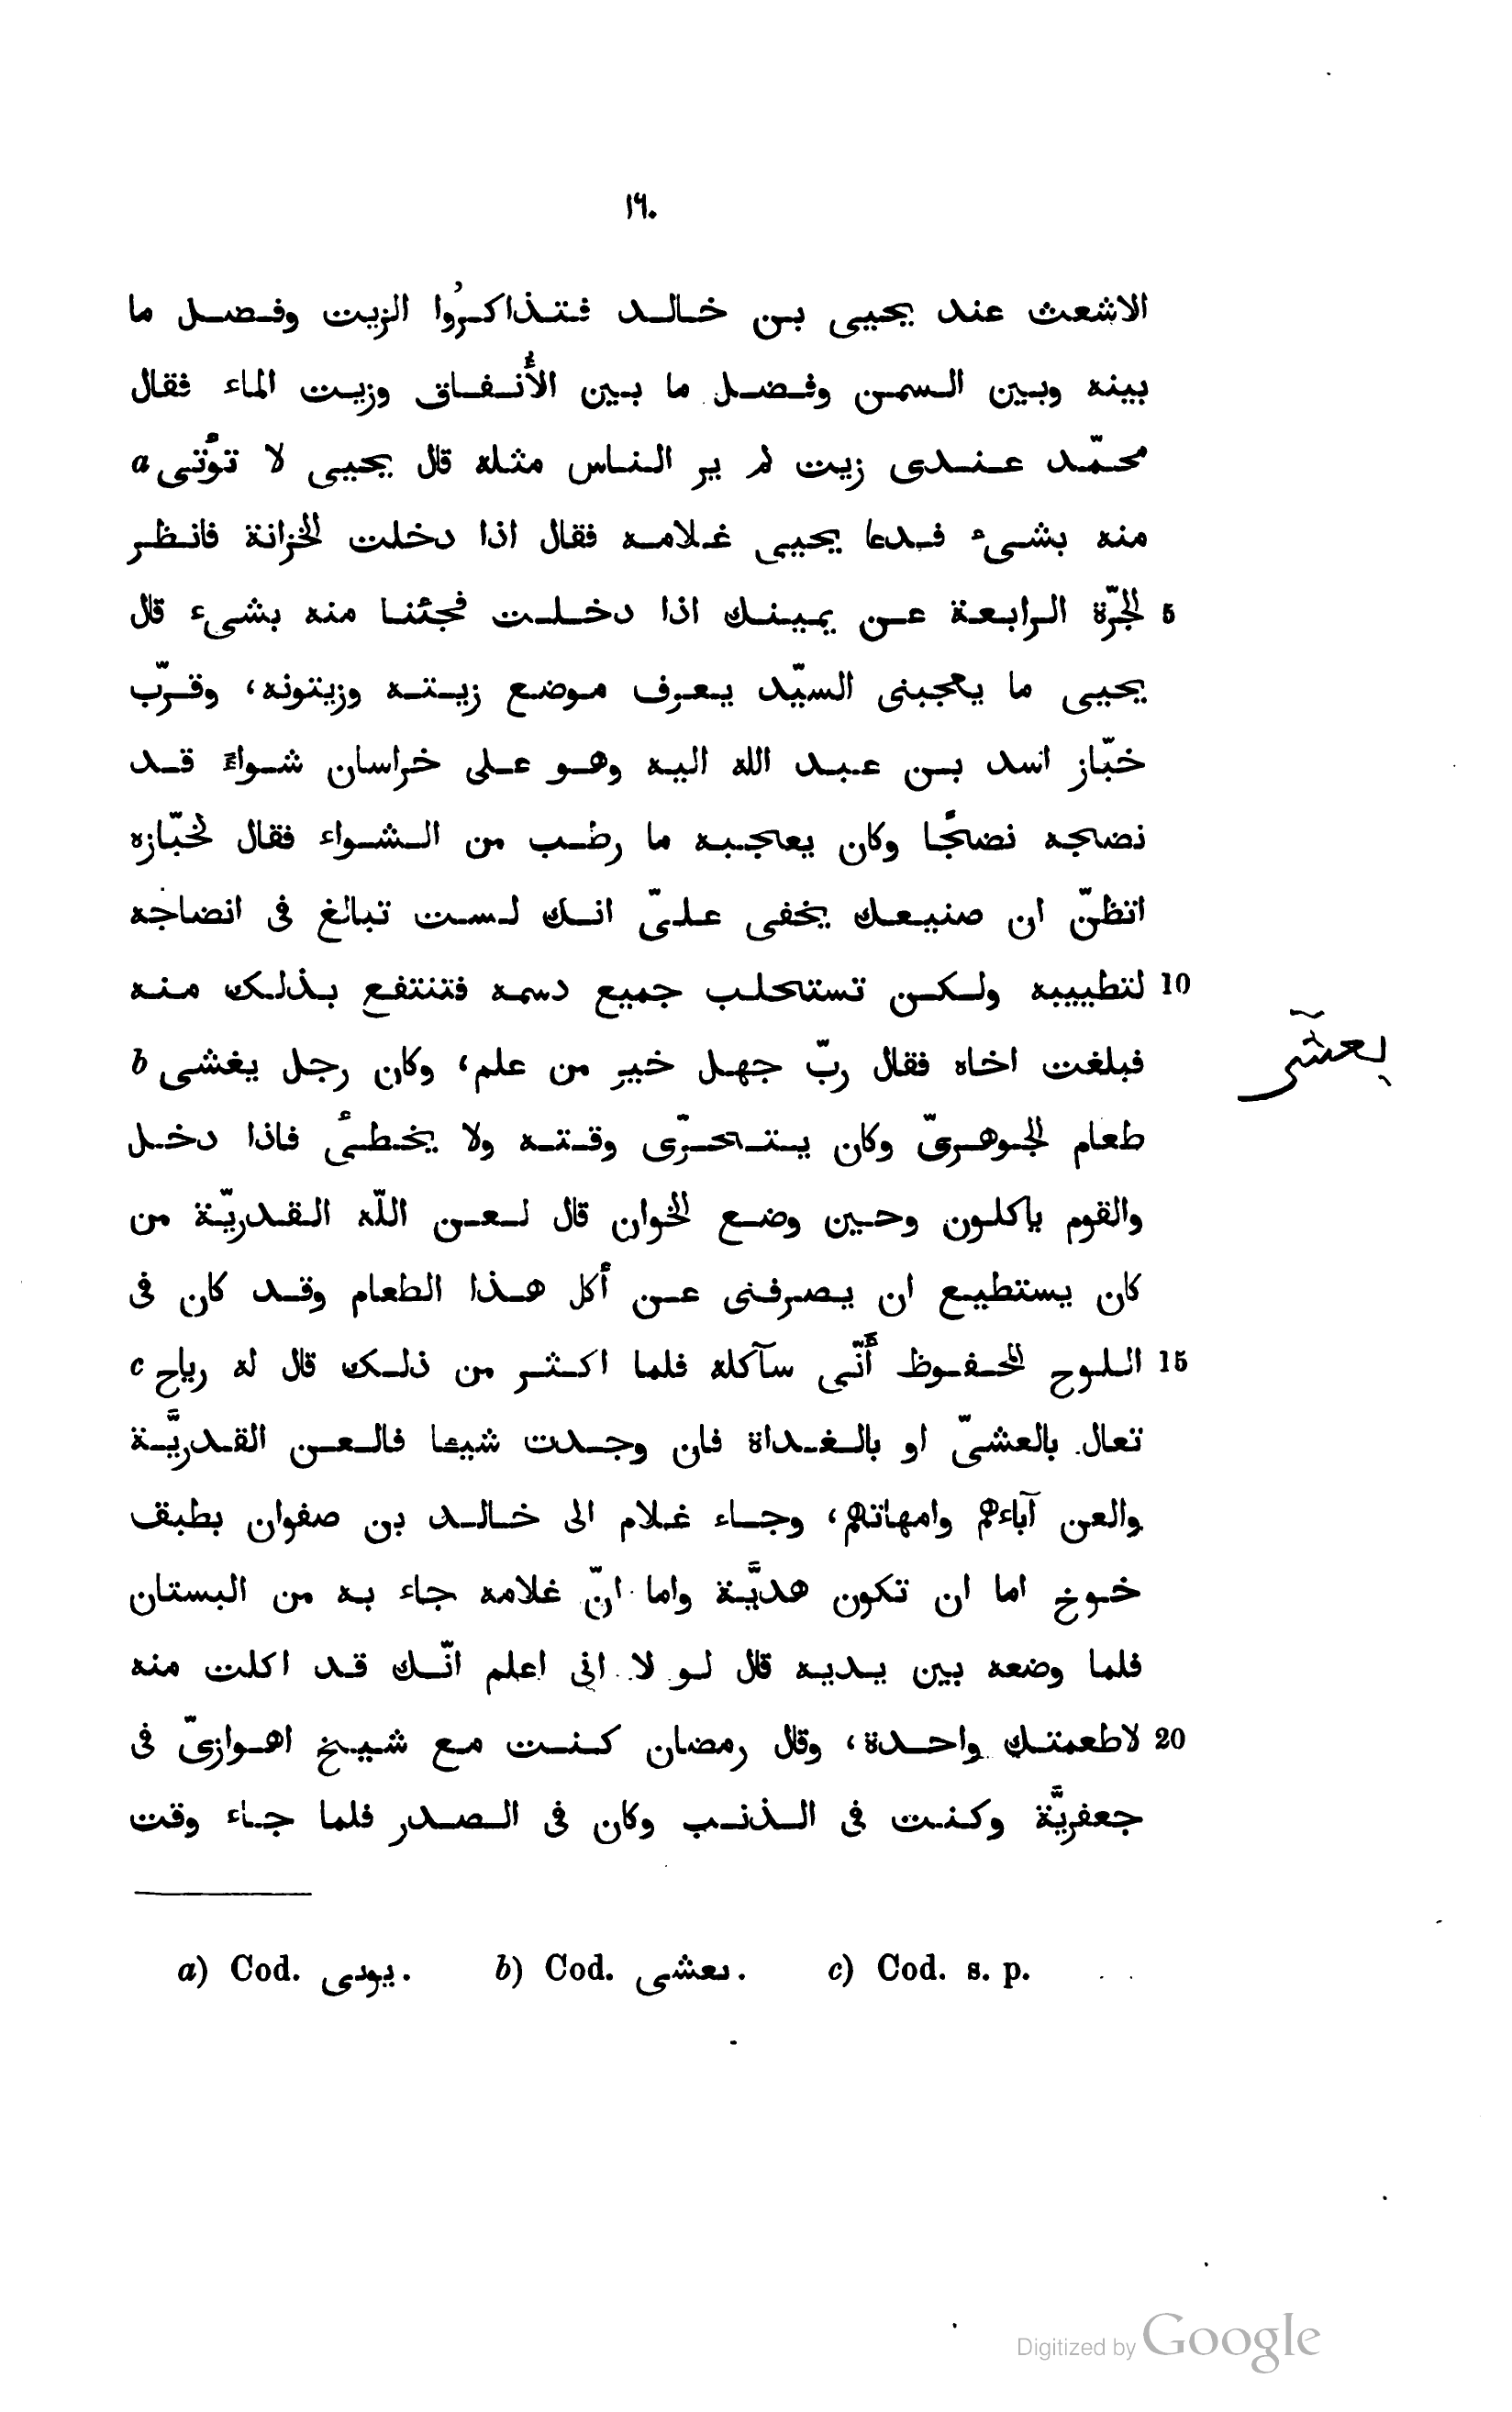 ١٦٠
الاشعث عند يحيى بن خالد فتذاكرُوا الزيت وفصل ما
بينه وبين السمن وفصل ما بين الأُنفاق وزيت الماء فقال
محمّد عندى زيت لم ير الناس مثله قال يحيى لا تؤتى a
منه بشىء فدعا يحيى غلامه فقال اذا دخلت الخزانة فانظر
5 الجرّة الرابعة عن يمينك اذا دخلت فجئنا منه بشىء قال
يحيى ما يعجبنى السيّد يعرف موضع زيته وزيتونه، وقرّب
خبّاز اسد بن عبد الله اليه وهو على خراسان شواءً قد
نضجه نضجًا وكان يعجبه ما رطب من الشواء فقال لخبّازه
اتظنّ ان صنيعك يخفى علىّ انك لست تبالغ فى انضاجه
10 لتطييبه ولكن تستحلب جميع دسمه فتنتفع بذلك منه
فبلغت اخاه فقال ربّ جهل خير من علم، وكان رجل يغشى b
يعشّى
طعام الجوهرىّ وكان يتحرّى وقته ولا يخطئُ فاذا دخل
والقوم ياكلون وحين وضع الخوان قال لعن اللّه القدريّة من
كان يستطيع ان يصرفنى عن أكل هذا الطعام وقد كان فى
15 اللوح المحفوظ أَنّى سآكله فلما اكثر من ذلك قال له رياح c
تعال بالعشىّ او بالغداة فان وجدت شيئا فالعن القدريَّة
والعن آباءهم وامهاتهم، وجاء غلام الى خالد بن صفوان بطبق
خوخ اما ان تكون هديَّة واما انّ غلامه جاء به من البستان
فلما وضعه بين يديه قال لو لا انى اعلم انّك قد اكلت منه
20 لاطعمتك واحدة، وقال رمضان كنت مع شيخ اهوازىّ فى
جعفريَّة وكنت فى الذنب وكان فى الصدر فلما جاء وقت
a) Cod. يودى. b) Cod. ىعشى. c) Cod. s. p.
Digitized by Google